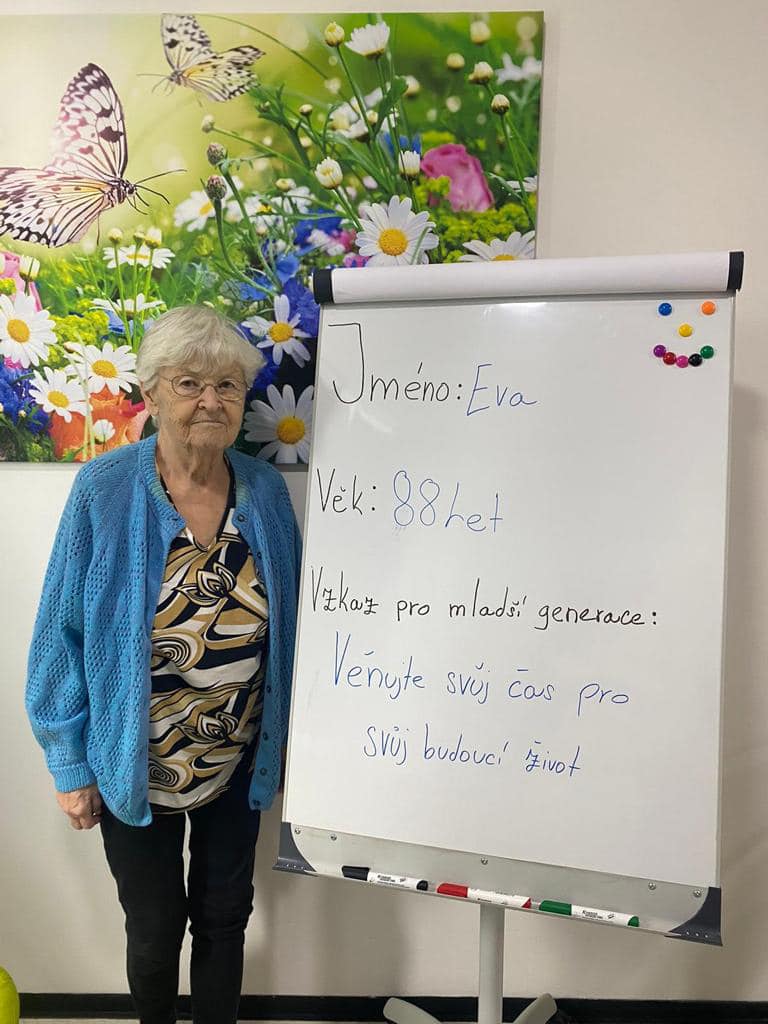 Jméno: Eva
Věk: 88 let
Vzkaz pro mladší generace:
Věnujte svůj čas pro
svůj budoucí život